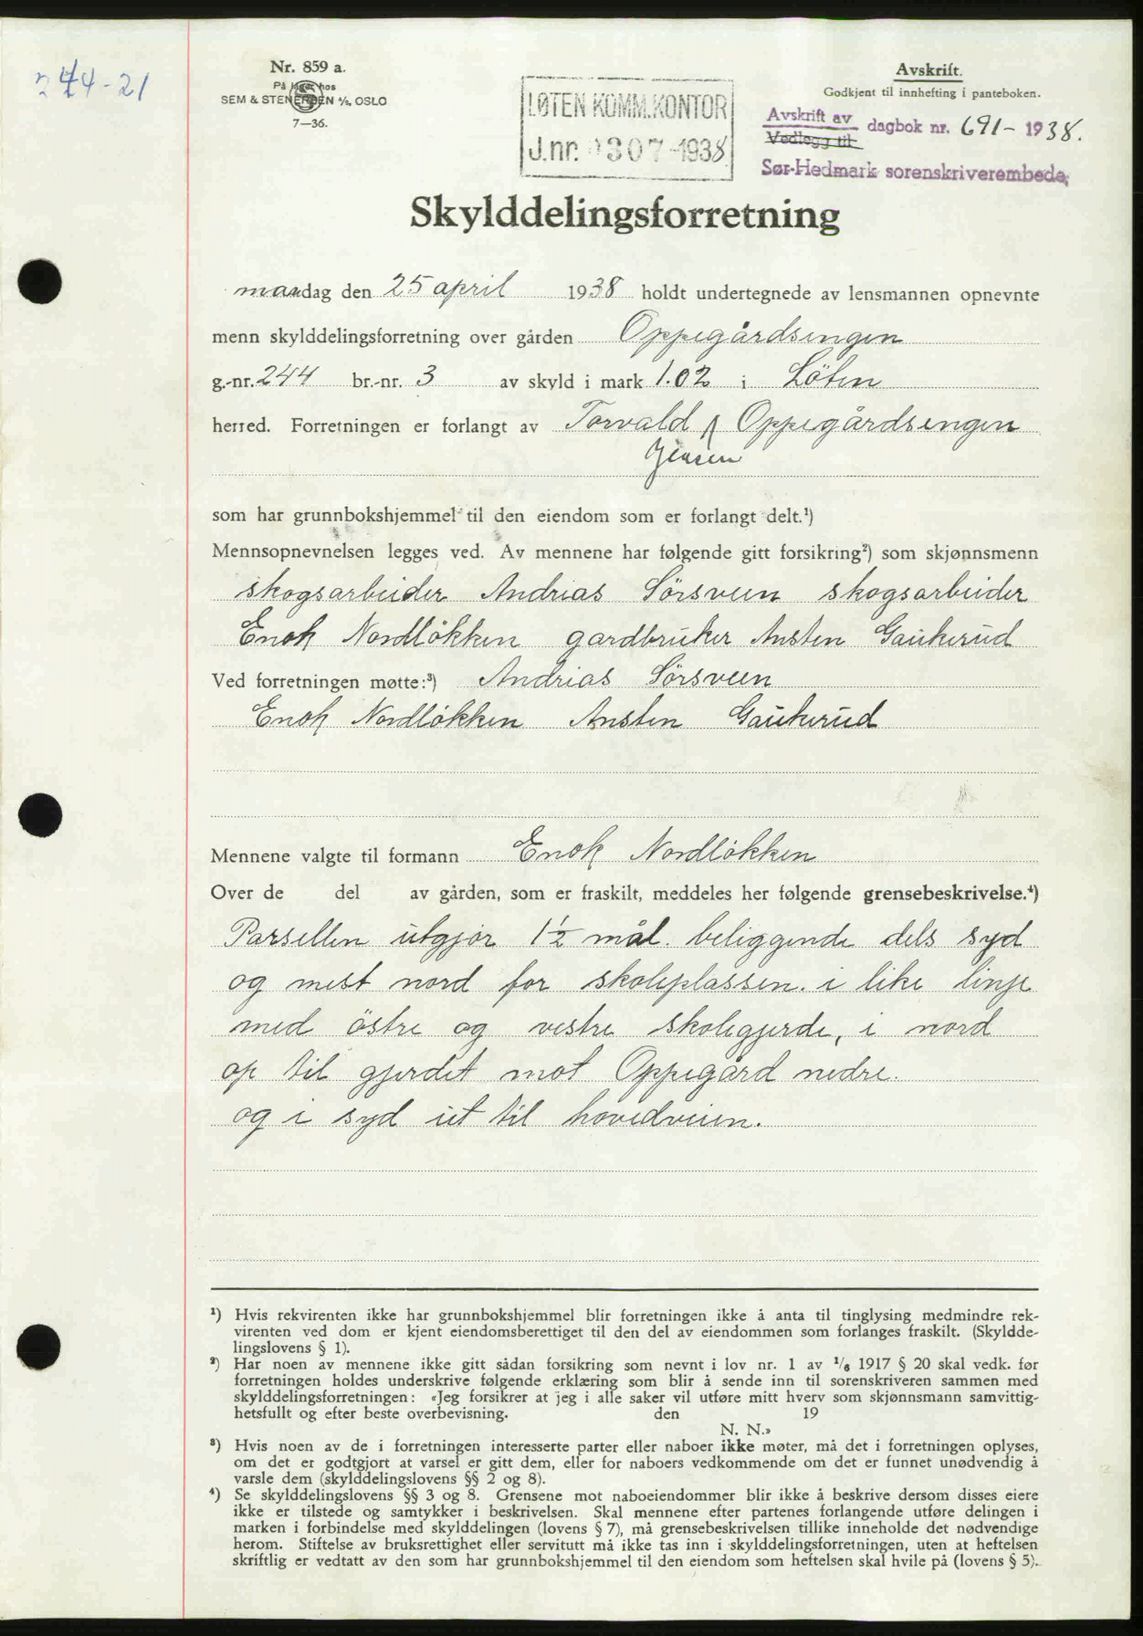 244-21
Nr. 859 a.
På lager hos
SEM & STENERSEN A/S, OSLO
7—36.
LØTEN KOMM.KONTOR
J.nr. 1307-1938
Avskrift.
Godkjent til innhefting i panteboken.
Avskrift av
Vedlegg til
dagbok nr. 691-1938.
Sør-Hedmark sorenskriverembede,
Skylddelingsforretning
mandag den 25 april 1938 holdt undertegnede av lensmannen opnevnte
menn skylddelingsforretning over gården Oppegårdsengen
g.-nr. 244 br.-nr. 3 av skyld i mark 1.02 i Löten
herred. Forretningen er forlangt av Torvald Oppegårdsengen
Jensen
som har grunnbokshjemmel til den eiendom som er forlangt delt.¹)
Mennsopnevnelsen legges ved. Av mennene har følgende gitt forsikring²) som skjønnsmenn
skogsarbeider Andrias Sörsveen skogsarbeider
Enok Nordlökken gardbruker Ansten Gaukerud
Ved forretningen møtte:³) Andrias Sörsveen
Enok Nordlökken Ansten Gaukerud
Mennene valgte til formann Enok Nordlökken
Over de del av gården, som er fraskilt, meddeles her følgende grensebeskrivelse.⁴)
Parsellen utgjör 1½ mål. beliggende dels syd
og mest nord for skoleplassen. i like linje
med östre og vestre skolegjerde, i nord
op til gjerdet mot Oppegård nedre.
og i syd ut til hovedveien.
¹) Hvis rekvirenten ikke har grunnbokshjemmel blir forretningen ikke å anta til tinglysing medmindre rek-
virenten ved dom er kjent eiendomsberettiget til den del av eiendommen som forlanges fraskilt. (Skyldde-
lingslovens § 1).
²) Har noen av mennene ikke gitt sådan forsikring som nevnt i lov nr. 1 av 1/6 1917 § 20 skal vedk. før
forretningen holdes underskrive følgende erklæring som blir å sende inn til sorenskriveren sammen med
skylddelingsforretningen: «Jeg forsikrer at jeg i alle saker vil utføre mitt hverv som skjønnsmann samvittig-
hetsfullt og efter beste overbevisning. den 19
N. N.»
³) Hvis noen av de i forretningen interesserte parter eller naboer ikke møter, må det i forretningen oplyses,
om det er godtgjort at varsel er gitt dem, eller for naboers vedkommende om det er funnet unødvendig å
varsle dem (skylddelingslovens §§ 2 og 8).
⁴) Se skylddelingslovens §§ 3 og 8. Grensene mot naboeiendommer blir ikke å beskrive dersom disses eiere
ikke er tilstede og samtykker i beskrivelsen. Skal mennene efter partenes forlangende utføre delingen i
marken i forbindelse med skylddelingen (lovens § 7), må grensebeskrivelsen tillike inneholde det nødvendige
herom. Stiftelse av bruksrettighet eller servitutt må ikke tas inn i skylddelingsforretningen, uten at heftelsen
skriftlig er vedtatt av den som har grunnbokshjemmel til den eiendom som heftelsen skal hvile på (lovens § 5).